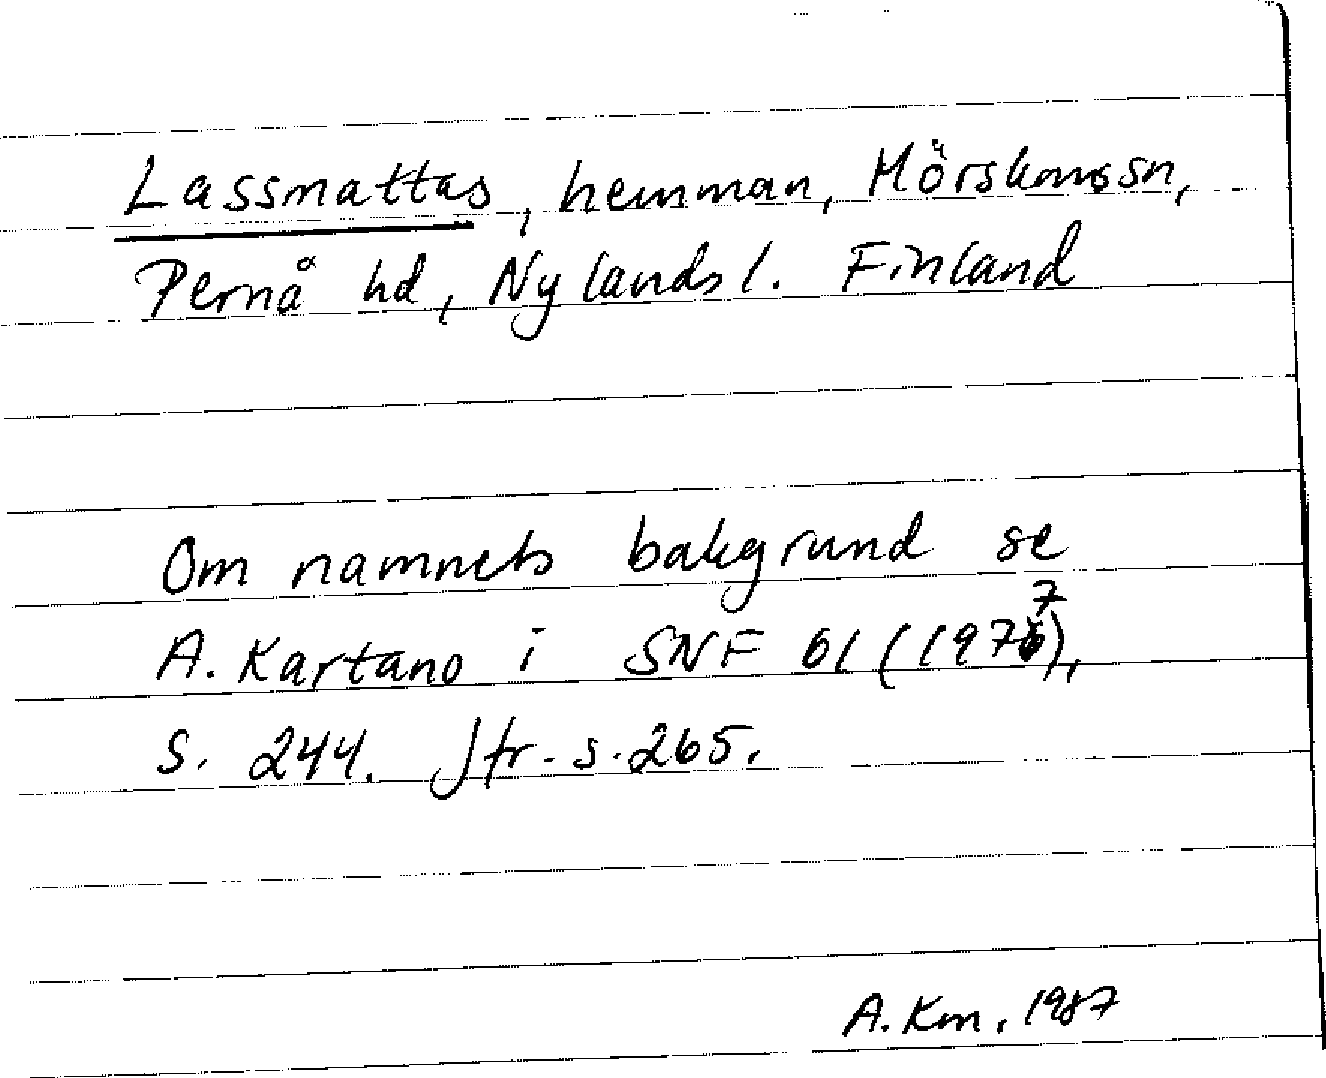 Lassmattas, hemman, Mörskoms sn,
Pernå hd, Nylands l. Finland
Om namnets bakgrund se
A. Kartano i SNF 61 (1977),
S. 244. Jfr. s. 265.
A. Km. 1987